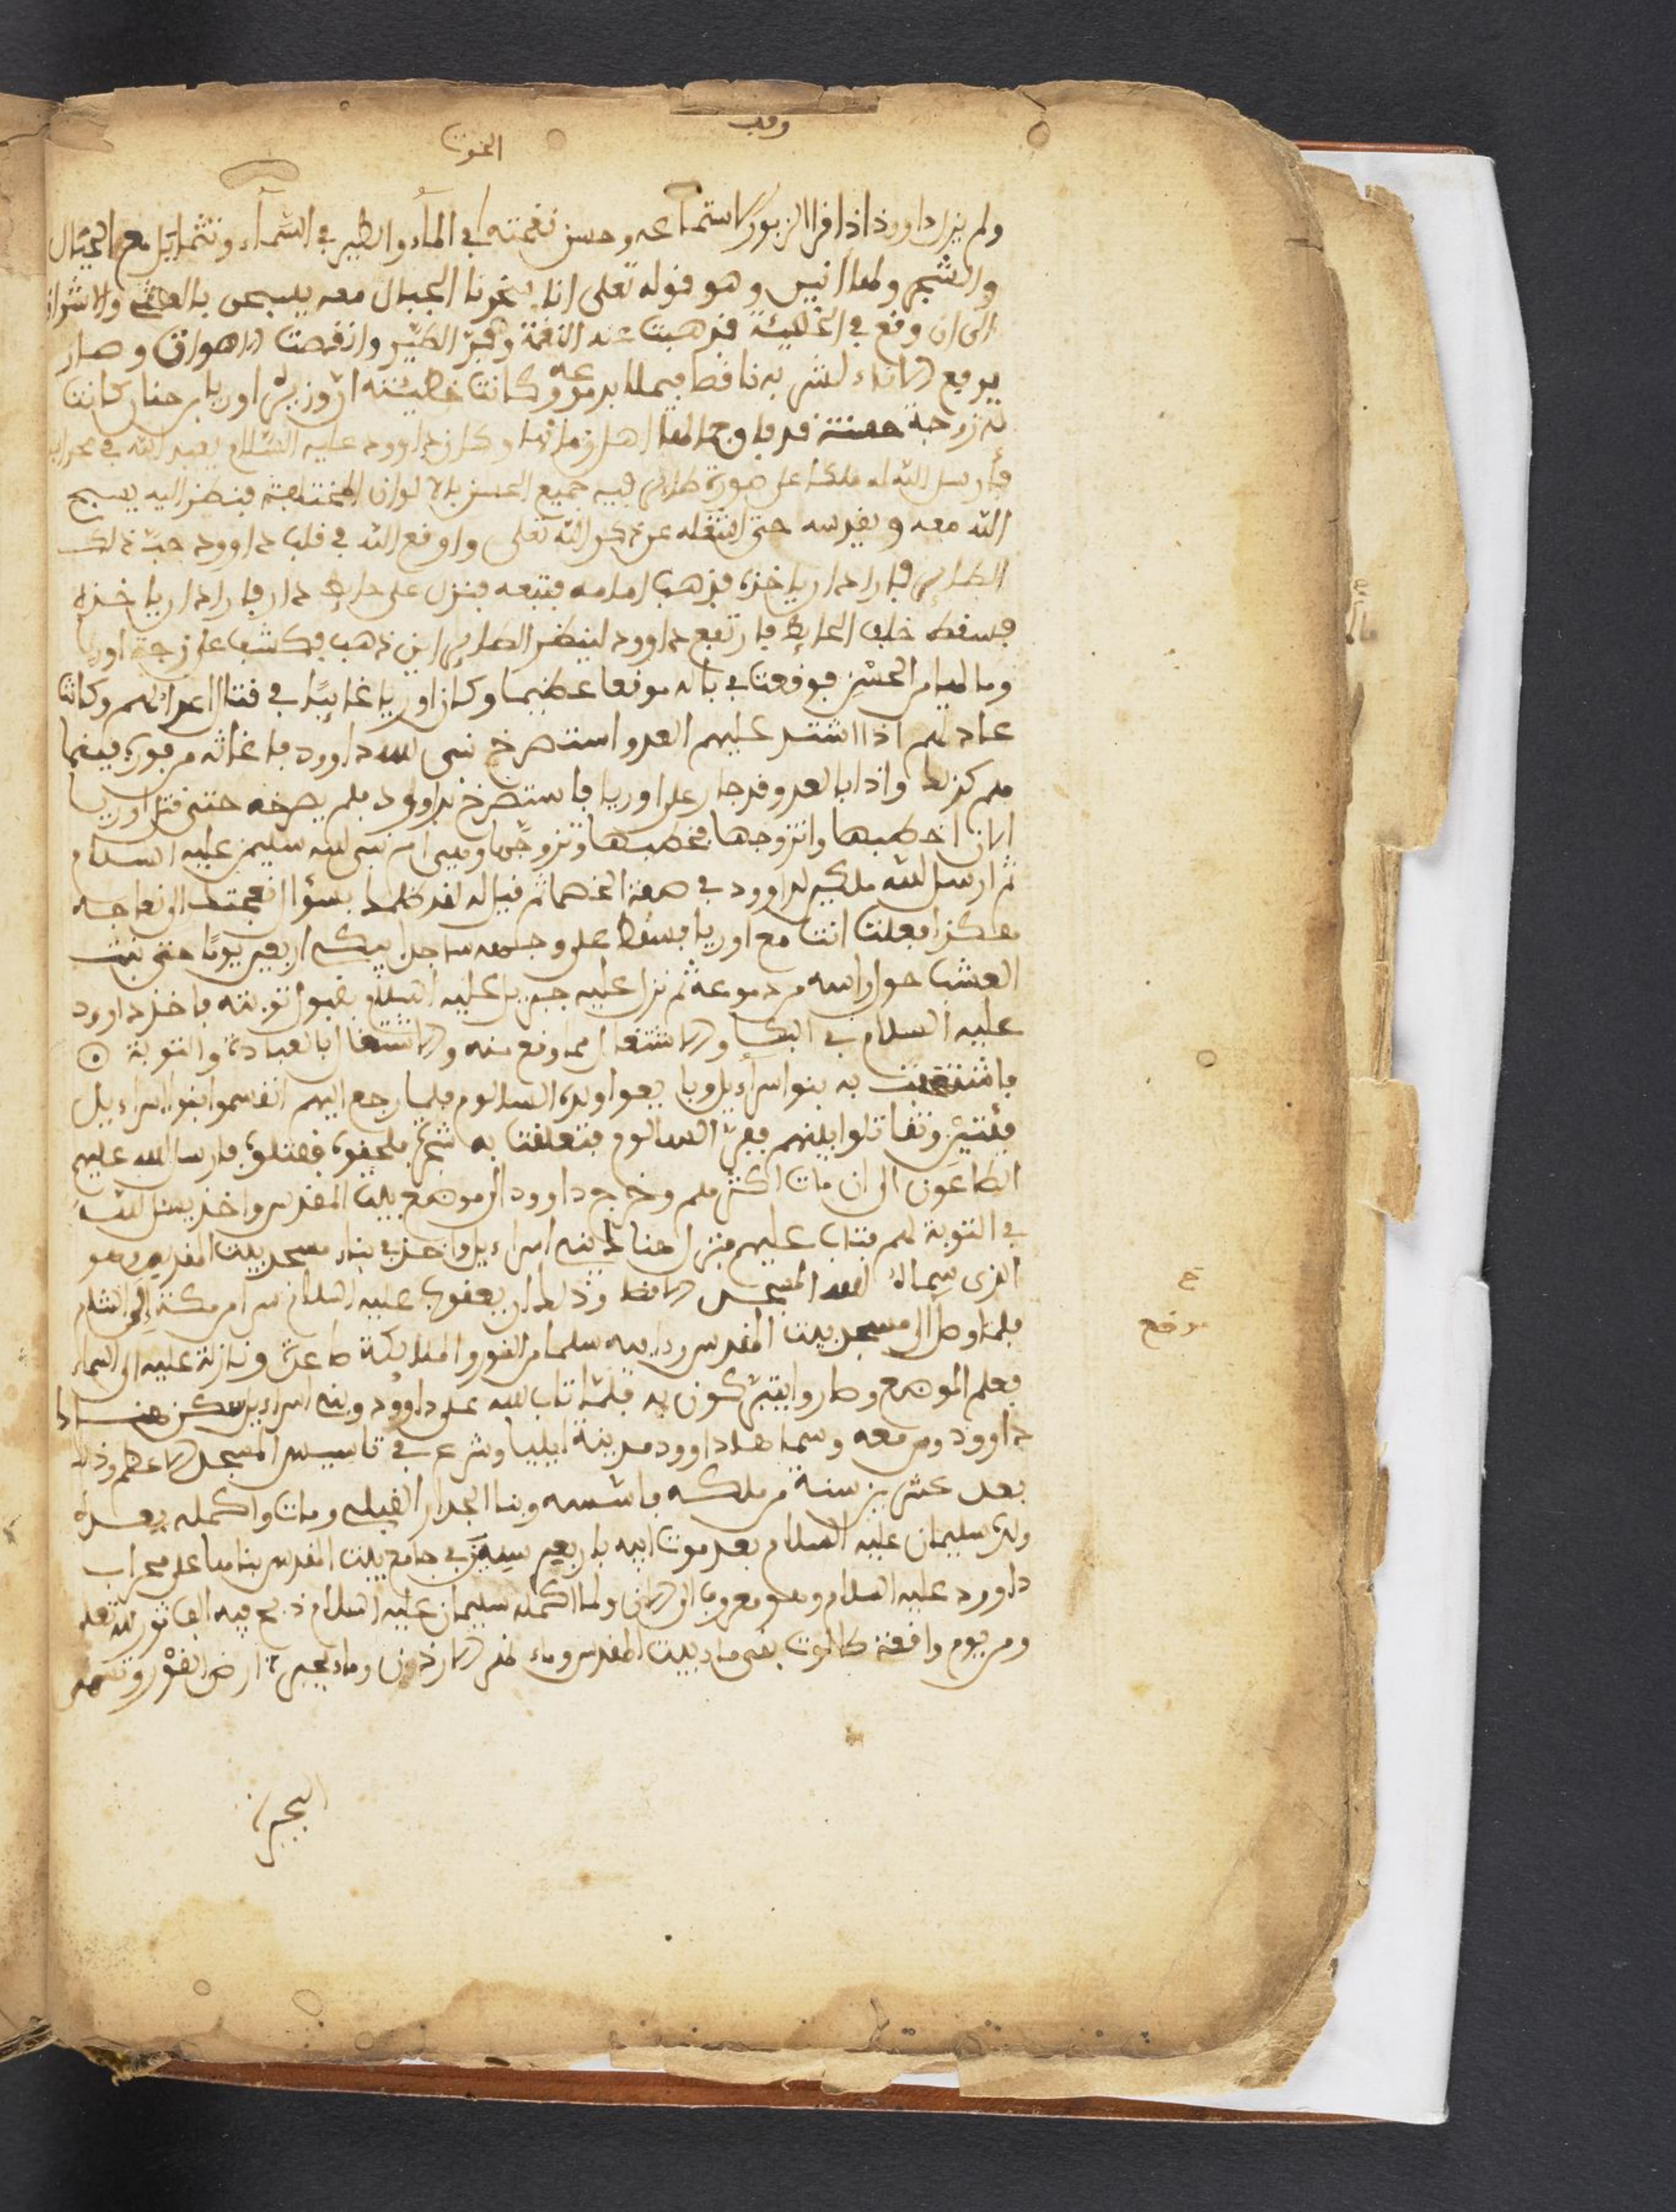 وقف
الحوت
ولم يزل داوود اذا قرا الزبور استماعه وحسن نغمته في الماء والطير في السماء وتتمايل مع الجبال
والشجر ولها انيس وهو قوله تعلى انا سخرنا الجبال معه يسبحن بالعشي والاشراق
الى ان وقع في الخطيئة فذهبت عنه النغمة وفر الطير وانخفضت الاصوات وصار
يرفع الاناء لشربه ناقصا فيملا بدموعه وكانت خطيئته ان وزيره اوريا بن حنان كانت
له زوجة حسنة قد فاق جمالها اهل زمانها وكان داوود عليه السلام يعبد الله في محرابه
فأرسل الله له ملكا على صورة طائر فيه جميع الحسن بالالوان المختلفة فنظر اليه يسبح
الله معه ويقدسه حتى اشغله عن ذكر الله تعلى واوقع الله في قلب داوود حب ذلك
الطائر فاراد ان ياخذه فذهب امامه فتبعه فنزل على حايط دار فاراد ان ياخذه
فسقط خلف الحايط فارتفع داوود لينظر الطائر اين ذهب فكشف على زوجة اوريا
وما لها من الحسن فوقعت في باله موقعا عظيما وكان اوريا غائبا في قتال اعدائهم وكانت
عادتهم اذا اشتد عليهم العدو استصرخ نبي الله داوود فاغاثه من فوره فبينما
هم كذلك واذا بالعدو قد جار على اوريا فاستصرخ بداوود فلم يصرخه حتى قتل اوريا
الى ان خطبها وتزوجها فخطبها وتزوجها وهي ام نبي الله سليمن عليه السلام
ثم ارسل الله ملكين لداوود في صفة الخصمان فقال له لقد ظلمك بسؤال نعجتك الى نعاجه
هكذا فعلت انت مع اوريا فسقط على وجهه ساجدا يبكي اربعين يوما حتى نبت
العشب حول راسه من دموعه ثم نزل عليه جبريل عليه السلام بقبول توبته فاخذ داوود
عليه السلام في البكا والاشتغال مما وقع منه والاشتغال بالعبادة والتوبة ⊙
فاشتغلت به بنوا اسراءيل وبايعوا ولده السالوم فلما رجع اليهم انقسموا بنوا اسراءيل
فئتين وتقاتلوا بينهم ففر السالوم فتعلقت به شجرة فلحقوه فقتلوه فارسل الله عليهم
الطاعون الى ان مات اكثرهم وخرج داوود الى موضع بيت المقدس واخذ يسئل الله
في التوبة لهم فتاب عليهم فنزل هناك ببني اسراءيل واخذ في بناء مسجد بيت المقدس وهو
الذي سماه الله المسجد الاقصا وذلك ان يعقوب عليه السلام سرا من مكة الى الشام
فلما وصل الى مسجد بيت المقدس وراى سلما من النور والملائكة صاعدة ونازلة عليه الى السماء
فعلم الموضع وصاروا يتبركون به فلما تاب الله على داوود وبني اسراءيل سكن هناك
داوود ومن معه وسماها داوود مدينة ايليا وشرع في تاسيس المسجد الاعظم وذلك
بعد عشرين سنة من ملكه فاسسه وبنا الجدار القبلي ومات واكمله بعده
ولده سليمان عليه السلام بعد موت ابيه باربعين سنة في جامع بيت المقدس بناها على محراب
داوود عليه السلام وهو معروف الى الان ولما اكمله سليمان عليه السلام ذبح فيه الف ثور لله تعلى
ومن يوم واقعة طالوت بقي ماء بيت المقدس وماء نهر الاردن وماء بحيرة ارض الغور ونهر
البحيرة
خ
موضع